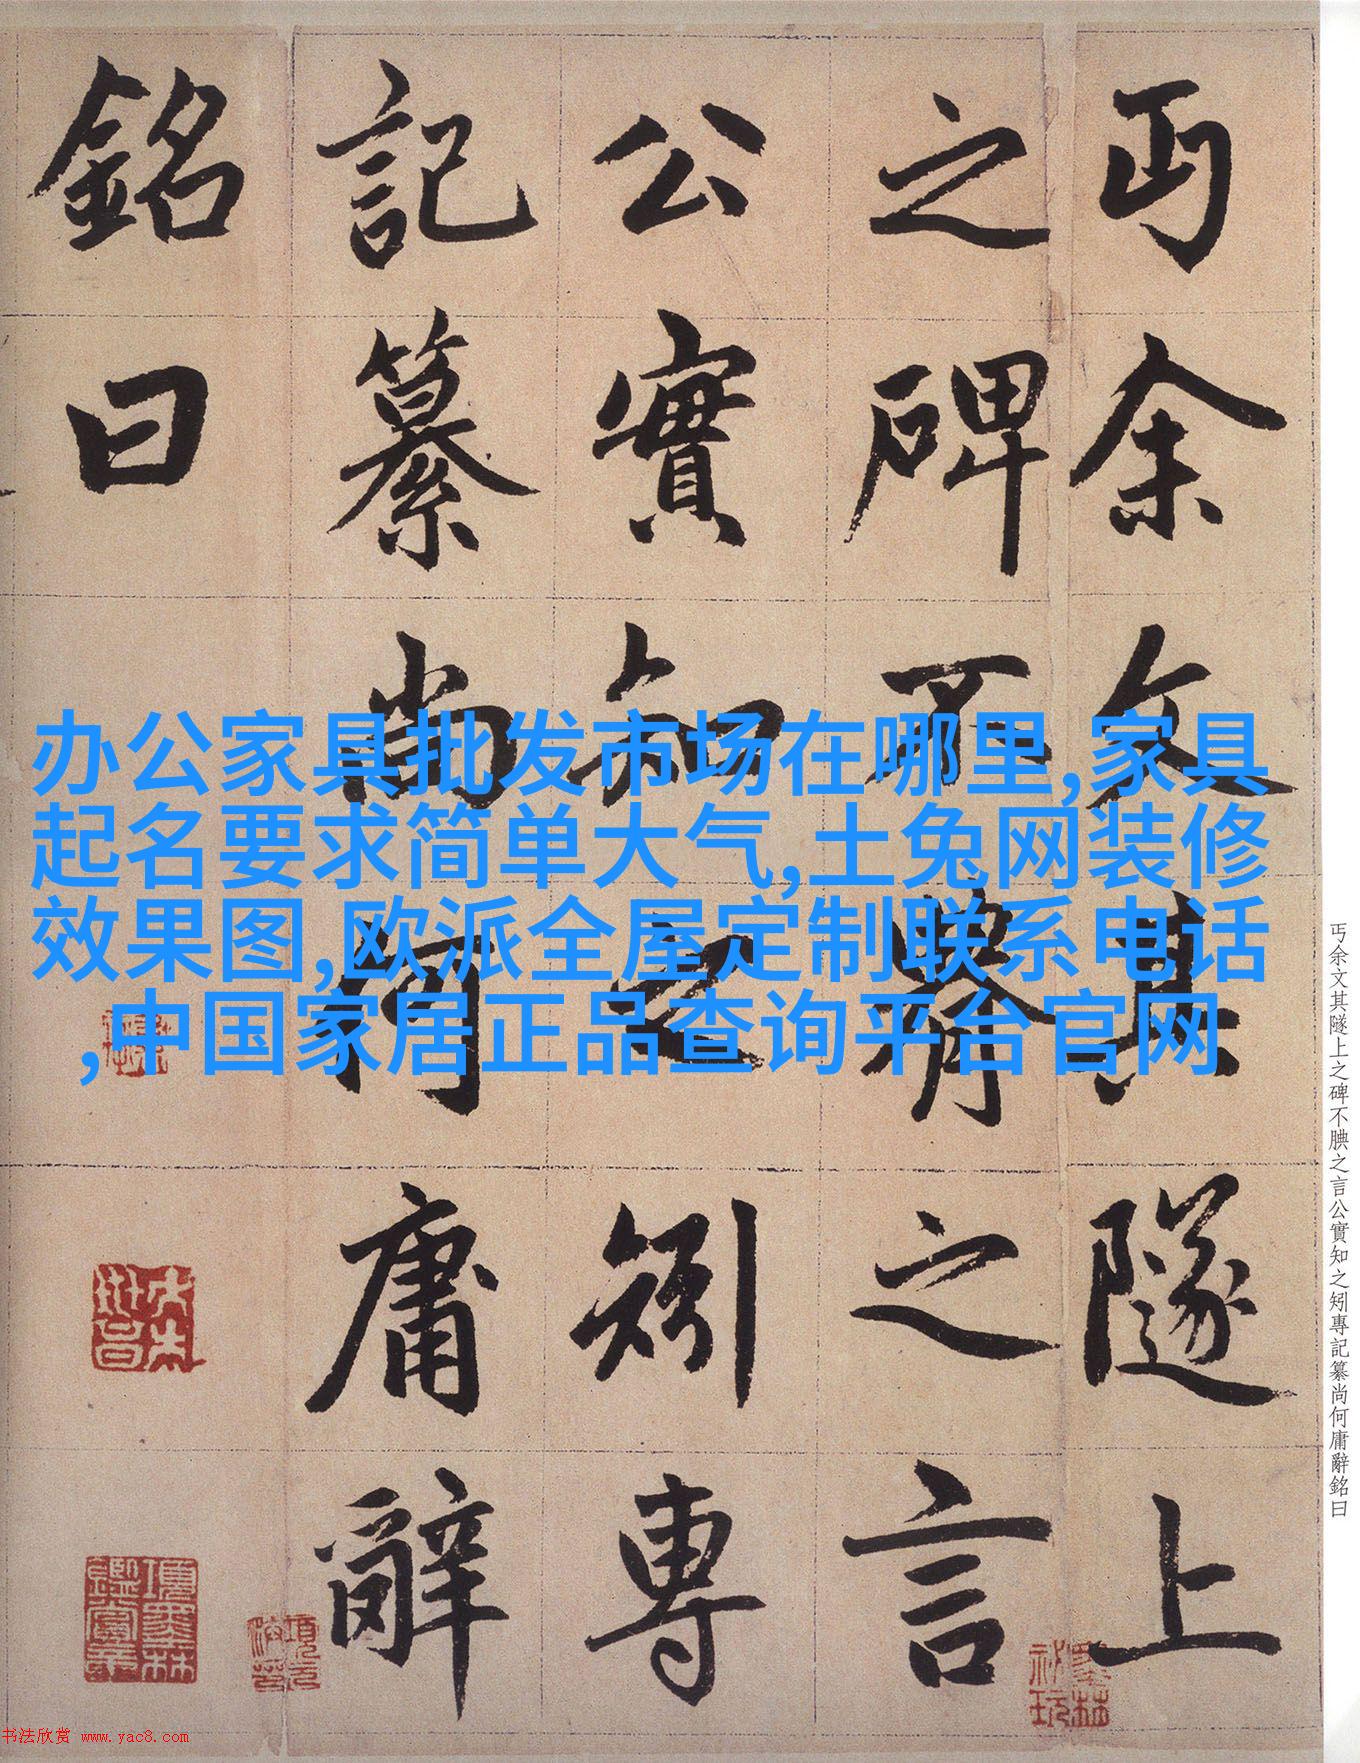 丐余文其隧上
之碑不腆之言
公實知之矧專
記纂尚何庸辭
銘曰
办公家具批发市场在哪里,家具
起名要求简单大气,土兔网装修
效果图,欧派全屋定制联系电话
,中国家居正品查询平台官网
丐余文其隧上之碑不腆之言公實知之矧專記纂尚何庸辭銘曰
书法欣赏 www.yac8.com